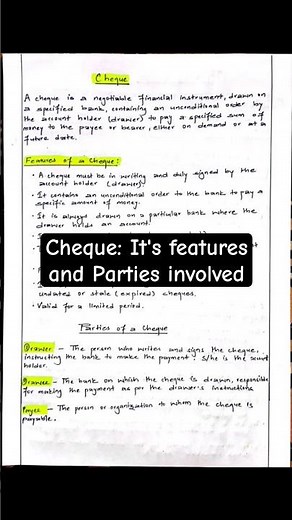 Cheque
A cheque is a negotiable financial instrument, drawn on
a specified bank, containing an unconditional order by
the account holder (drawer) to pay a specified sum of
money to the payee or bearer, either on demand or at a
future date.
Features of a Cheque:
• A cheque must be in writing and duly signed by the
account holder (drawer)
• It contains an unconditional order to the bank to pay a
specific amount of money.
• It is always drawn on a particular bank where the
drawer holds an account.
Cheque: It's features
and Parties involved
undated or stale (expired) cheques.
• Valid for a limited period.
Parties of a Cheque
Drawer – The person who writes and signs the cheque,
instructing the bank to make the payment. S/he is the
holder.
Drawee – The bank on which the cheque is drawn, responsible
for making the payment as per the drawer's instructions
Payee – The person or organization to whom the cheque is
payable.